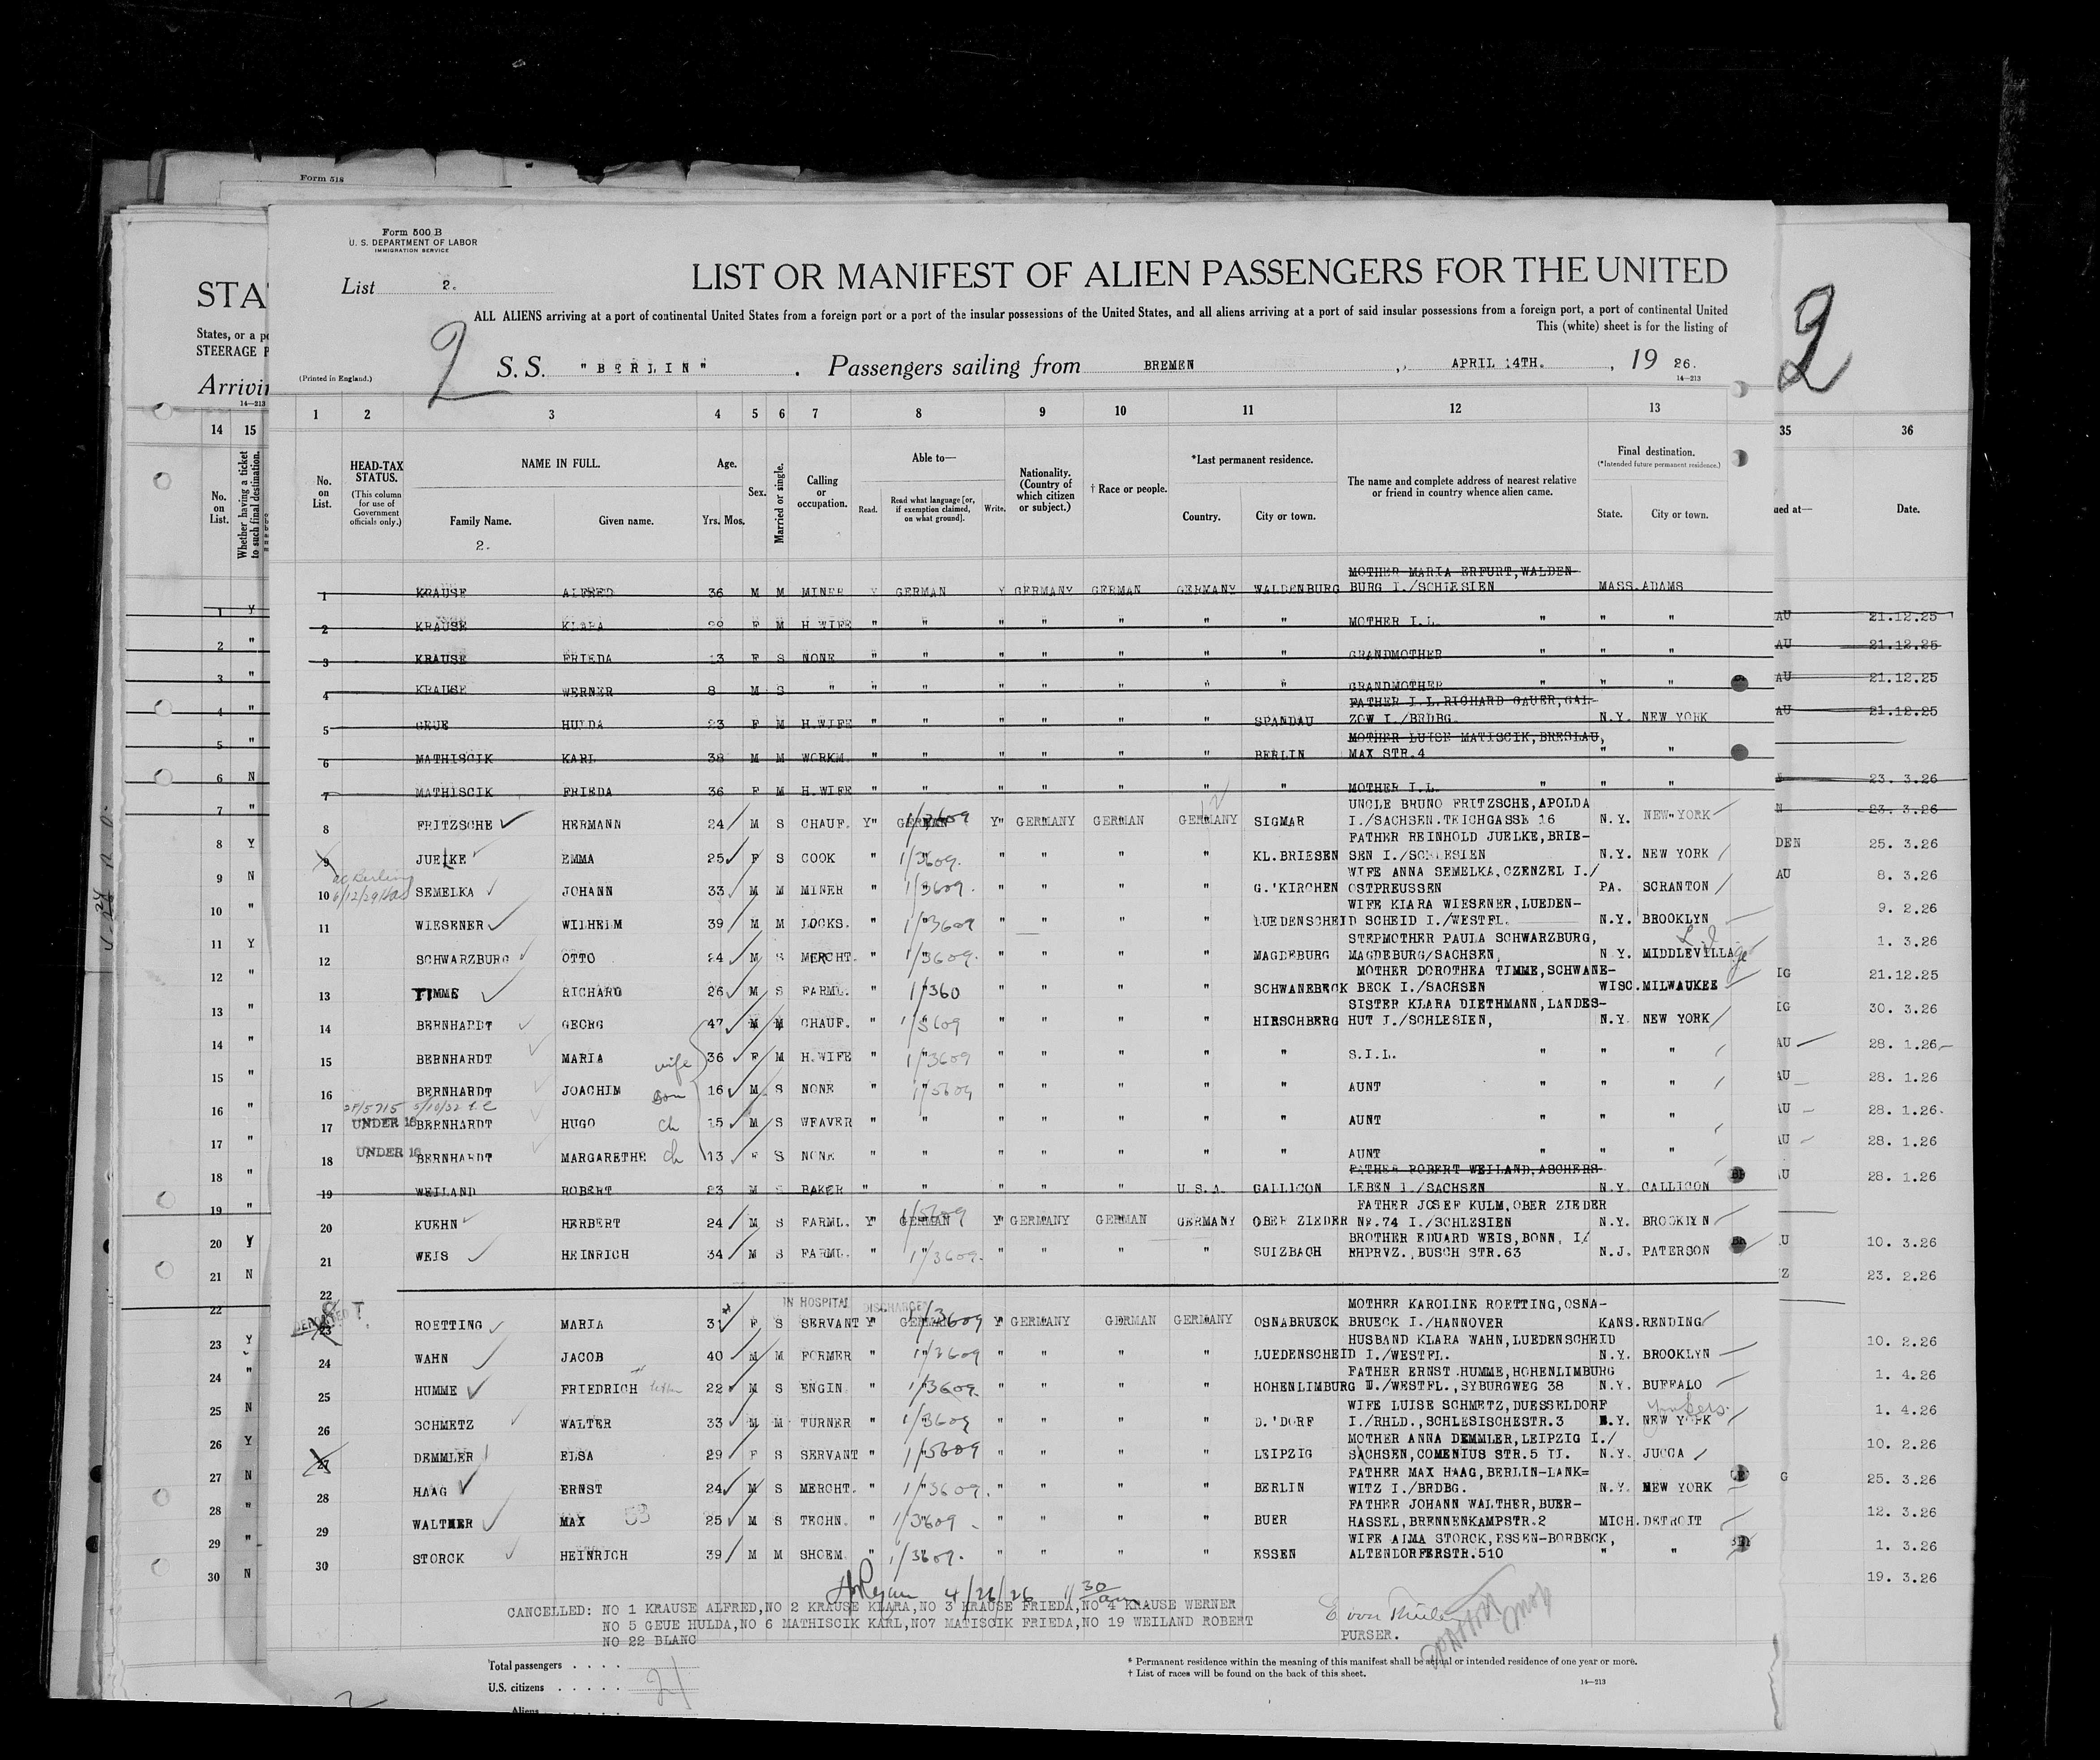 Form 518
Form 500 B
U. S. DEPARTMENT OF LABOR
IMMIGRATION SERVICE
List 2.
LIST OR MANIFEST OF ALIEN PASSENGERS FOR THE UNITED
ALL ALIENS arriving at a port of continental United States from a foreign port or a port of the insular possessions of the United States, and all aliens arriving at a port of said insular possessions from a foreign port, a port of continental United
This (white) sheet is for the listing of
2
S. S. "BERLIN" . Passengers sailing from BREMEN , APRIL 14TH. , 19 26.
(Printed in England.)
14—213
STA
States, or a po
STEERAGE P
Arrivin
14—213
2
1 2 3 4 5 6 7 8 9 10 11 12 13
14 15
35 36
No. on List.
HEAD-TAX STATUS.
(This column for use of Government officials only.)
NAME IN FULL.
Family Name.
Given name.
2.
Age.
Yrs. Mos.
Sex.
Married or single.
Calling or occupation.
Able to—
Read.
Read what language [or, if exemption claimed, on what ground].
Write.
Nationality. (Country of which citizen or subject.)
† Race or people.
*Last permanent residence.
Country.
City or town.
The name and complete address of nearest relative or friend in country whence alien came.
Final destination.
(*Intended future permanent residence.)
State.
City or town.
No. on List.
Whether having a ticket to such final destination.
ued at—
Date.
MOTHER MARIA ERFURT,WALDEN-
1 KRAUSE ALFRED 36 M M MINER Y GERMAN Y GERMANY GERMAN GERMANY WALDENBURG BURG I./SCHLESIEN MASS.ADAMS
2 KRAUSE KLARA F M H.WIFE " " " " " " " MOTHER I.L. " " "
3 KRAUSE FRIEDA 13 F S NONE " " " " " " " GRANDMOTHER " " "
4 KRAUSE WERNER 8 M S " " " " " " " " GRANDMOTHER " " "
FATHER I.L.RICHARD GAUER,GAL-
5 GEUE HULDA 23 F M H.WIFE " " " " " " SPANDAU ZOW I./BRDBG. N.Y. NEW YORK
MOTHER LUISE MATISCIK,BRESLAU,
6 MATHISCIK KARL 38 M M WORKM. " " " " " " BERLIN MAX STR.4 " "
7 MATHISCIK FRIEDA 36 F M H.WIFE " " " " " " " MOTHER I.L. " " "
UNCLE BRUNO FRITZSCHE,APOLDA
8 FRITZSCHE HERMANN 24 M S CHAUF. Y" GERMAN Y" GERMANY GERMAN GERMANY SIGMAR I./SACHSEN.TEICHGASSE 16 N.Y. NEW"YORK
FATHER REINHOLD JUELKE,BRIE-
9 JUELKE EMMA 25 F S COOK " 1/3609. " " " " KL.BRIESEN SEN I./SCHLESIEN N.Y. NEW YORK
WIFE ANNA SEMELKA,CZENZEL I./
10 SEMELKA JOHANN 33 M M MINER " 1/3609. " " " " G.'KIRCHEN OSTPREUSSEN PA. SCRANTON
WIFE KLARA WIESENER,LUEDEN-
11 WIESENER WILHELM 39 M M LOCKS. " 1/3609 " " " " LUEDENSCHEID SCHEID I./WESTFL. N.Y. BROOKLYN
STEPMOTHER PAULA SCHWARZBURG,
12 SCHWARZBURG OTTO 24 M S MERCHT. " 1/3609. " " " " MAGDEBURG MAGDEBURG/SACHSEN, N.Y. MIDDLEVILLAge L I
MOTHER DOROTHEA TIMME,SCHWANE-
13 TIMME RICHARD 26 M S FARML. " 1/360 " " " " SCHWANEBECK BECK I./SACHSEN WISC.MILWAUKEE
SISTER KLARA DIETHMANN,LANDES-
14 BERNHARDT GEORG 47 M M CHAUF. " 1/3609 " " " " HIRSCHBERG HUT I./SCHLESIEN, N.Y. NEW YORK
15 BERNHARDT MARIA wife 36 F M H.WIFE " 1/3609 " " " " " S.I.L. " " "
16 BERNHARDT JOACHIM son 16 M S NONE " 1/3609 " " " " " AUNT " " "
5/10/32
17 UNDER 16 BERNHARDT HUGO ch 15 M S WEAVER " " " " " " " AUNT " " "
18 UNDER 16 BERNHARDT MARGARETHE ch 13 F S NONE " " " " " " " AUNT " " "
FATHER ROBERT WEILAND,ASCHERS-
19 WEILAND ROBERT 23 M S BAKER " " " " " U.S.A. GALLICON LEBEN I./SACHSEN N.Y. CALLICON
FATHER JOSEF KULM,OBER ZIEDER
20 KUEHN HERBERT 24 M S FARML. Y" GERMAN Y" GERMANY GERMAN GERMANY OBER ZIEDER NR.74 I./SCHLESIEN N.Y. BROOKLYN
BROTHER EDUARD WEIS,BONN, I/
21 WEIS HEINRICH 34 M S FARML. " 1/3609. " " " " SULZBACH RHPRVZ.,BUSCH STR.63 N.J. PATERSON
22
IN HOSPITAL DISCHARGED
MOTHER KAROLINE ROETTING,OSNA-
23 ROETTING MARIA 31 F S SERVANT Y" GERMAN 1/3609 Y" GERMANY GERMAN GERMANY OSNABRUECK BRUECK I./HANNOVER KANS.RENDING
HUSBAND KLARA WAHN,LUEDENSCHEID
24 WAHN JACOB 40 M M FORMER " 1/3609 " " " " LUEDENSCHEID I./WESTFL. N.Y. BROOKLYN
FATHER ERNST HUMME,HOHENLIMBURG
25 HUMME FRIEDRICH 22 M S ENGIN. " 1/3609. " " " " HOHENLIMBURG I./WESTFL.,SYBURGWEG 38 N.Y. BUFFALO
WIFE LUISE SCHMETZ,DUESSELDORF Yonkers
26 SCHMETZ WALTER 33 M M TURNER " 1/3609 " " " " D.'DORF I./RHLD.,SCHLESISCHESTR.3 N.Y. NEW YORK
MOTHER ANNA DEMMLER,LEIPZIG I./
27 DEMMLER ELSA 29 F S SERVANT " 1/3609 " " " " LEIPZIG SACHSEN,COMENIUS STR.5 II. N.Y. JUCCA
FATHER MAX HAAG,BERLIN-LANK=
28 HAAG ERNST 24 M S MERCHT. " 1/3609. " " " " BERLIN WITZ I./BRDBG. N.Y. NEW YORK
FATHER JOHANN WALTHER,BUER-
29 WALTHER MAX 53 25 M S TECHN. " 1/3609 " " " " BUER HASSEL,BRENNENKAMPSTR.2 MICH.DETROIT
WIFE ALMA STORCK,ESSEN-BORBECK,
30 STORCK HEINRICH 39 M M SHOEM. " 1/3609. " " " " ESSEN ALTENDORFERSTR.510 " "
4/26/26 11 30 am
CANCELLED: NO 1 KRAUSE ALFRED,NO 2 KRAUSE KLARA,NO 3 KRAUSE FRIEDA,NO 4 KRAUSE WERNER
NO 5 GEUE HULDA,NO 6 MATHISCIK KARL,NO7 MATISCIK FRIEDA,NO 19 WEILAND ROBERT
NO 22 BLANC
PURSER.
Total passengers . . . . 21
U.S. citizens . . . . .
Aliens
* Permanent residence within the meaning of this manifest shall be actual or intended residence of one year or more.
† List of races will be found on the back of this sheet.
14—213
1 Y
2 "
3 "
4 "
5 "
6 N
7 "
8 Y
9 N
10 "
11 Y
12 "
13 "
14 "
15 "
16 "
17 "
18 "
19 "
20 Y
21 N
22
23 Y
24 "
25 N
26 Y
27 N
28 "
29 "
30 N
AU 21.12.25
AU 21.12.25
AU 21.12.25
AU 21.12.25
23. 3.26
N 23. 3.26
DEN 25. 3.26
AU 8. 3.26
9. 2.26
1. 3.26
IG 21.12.25
IG 30. 3.26
AU 28. 1.26
AU 28. 1.26
AU 28. 1.26
AU 28. 1.26
AU 28. 1.26
U 10. 3.26
Z 23. 2.26
10. 2.26
1. 4.26
1. 4.26
10. 2.26
G 25. 3.26
12. 3.26
1. 3.26
19. 3.26